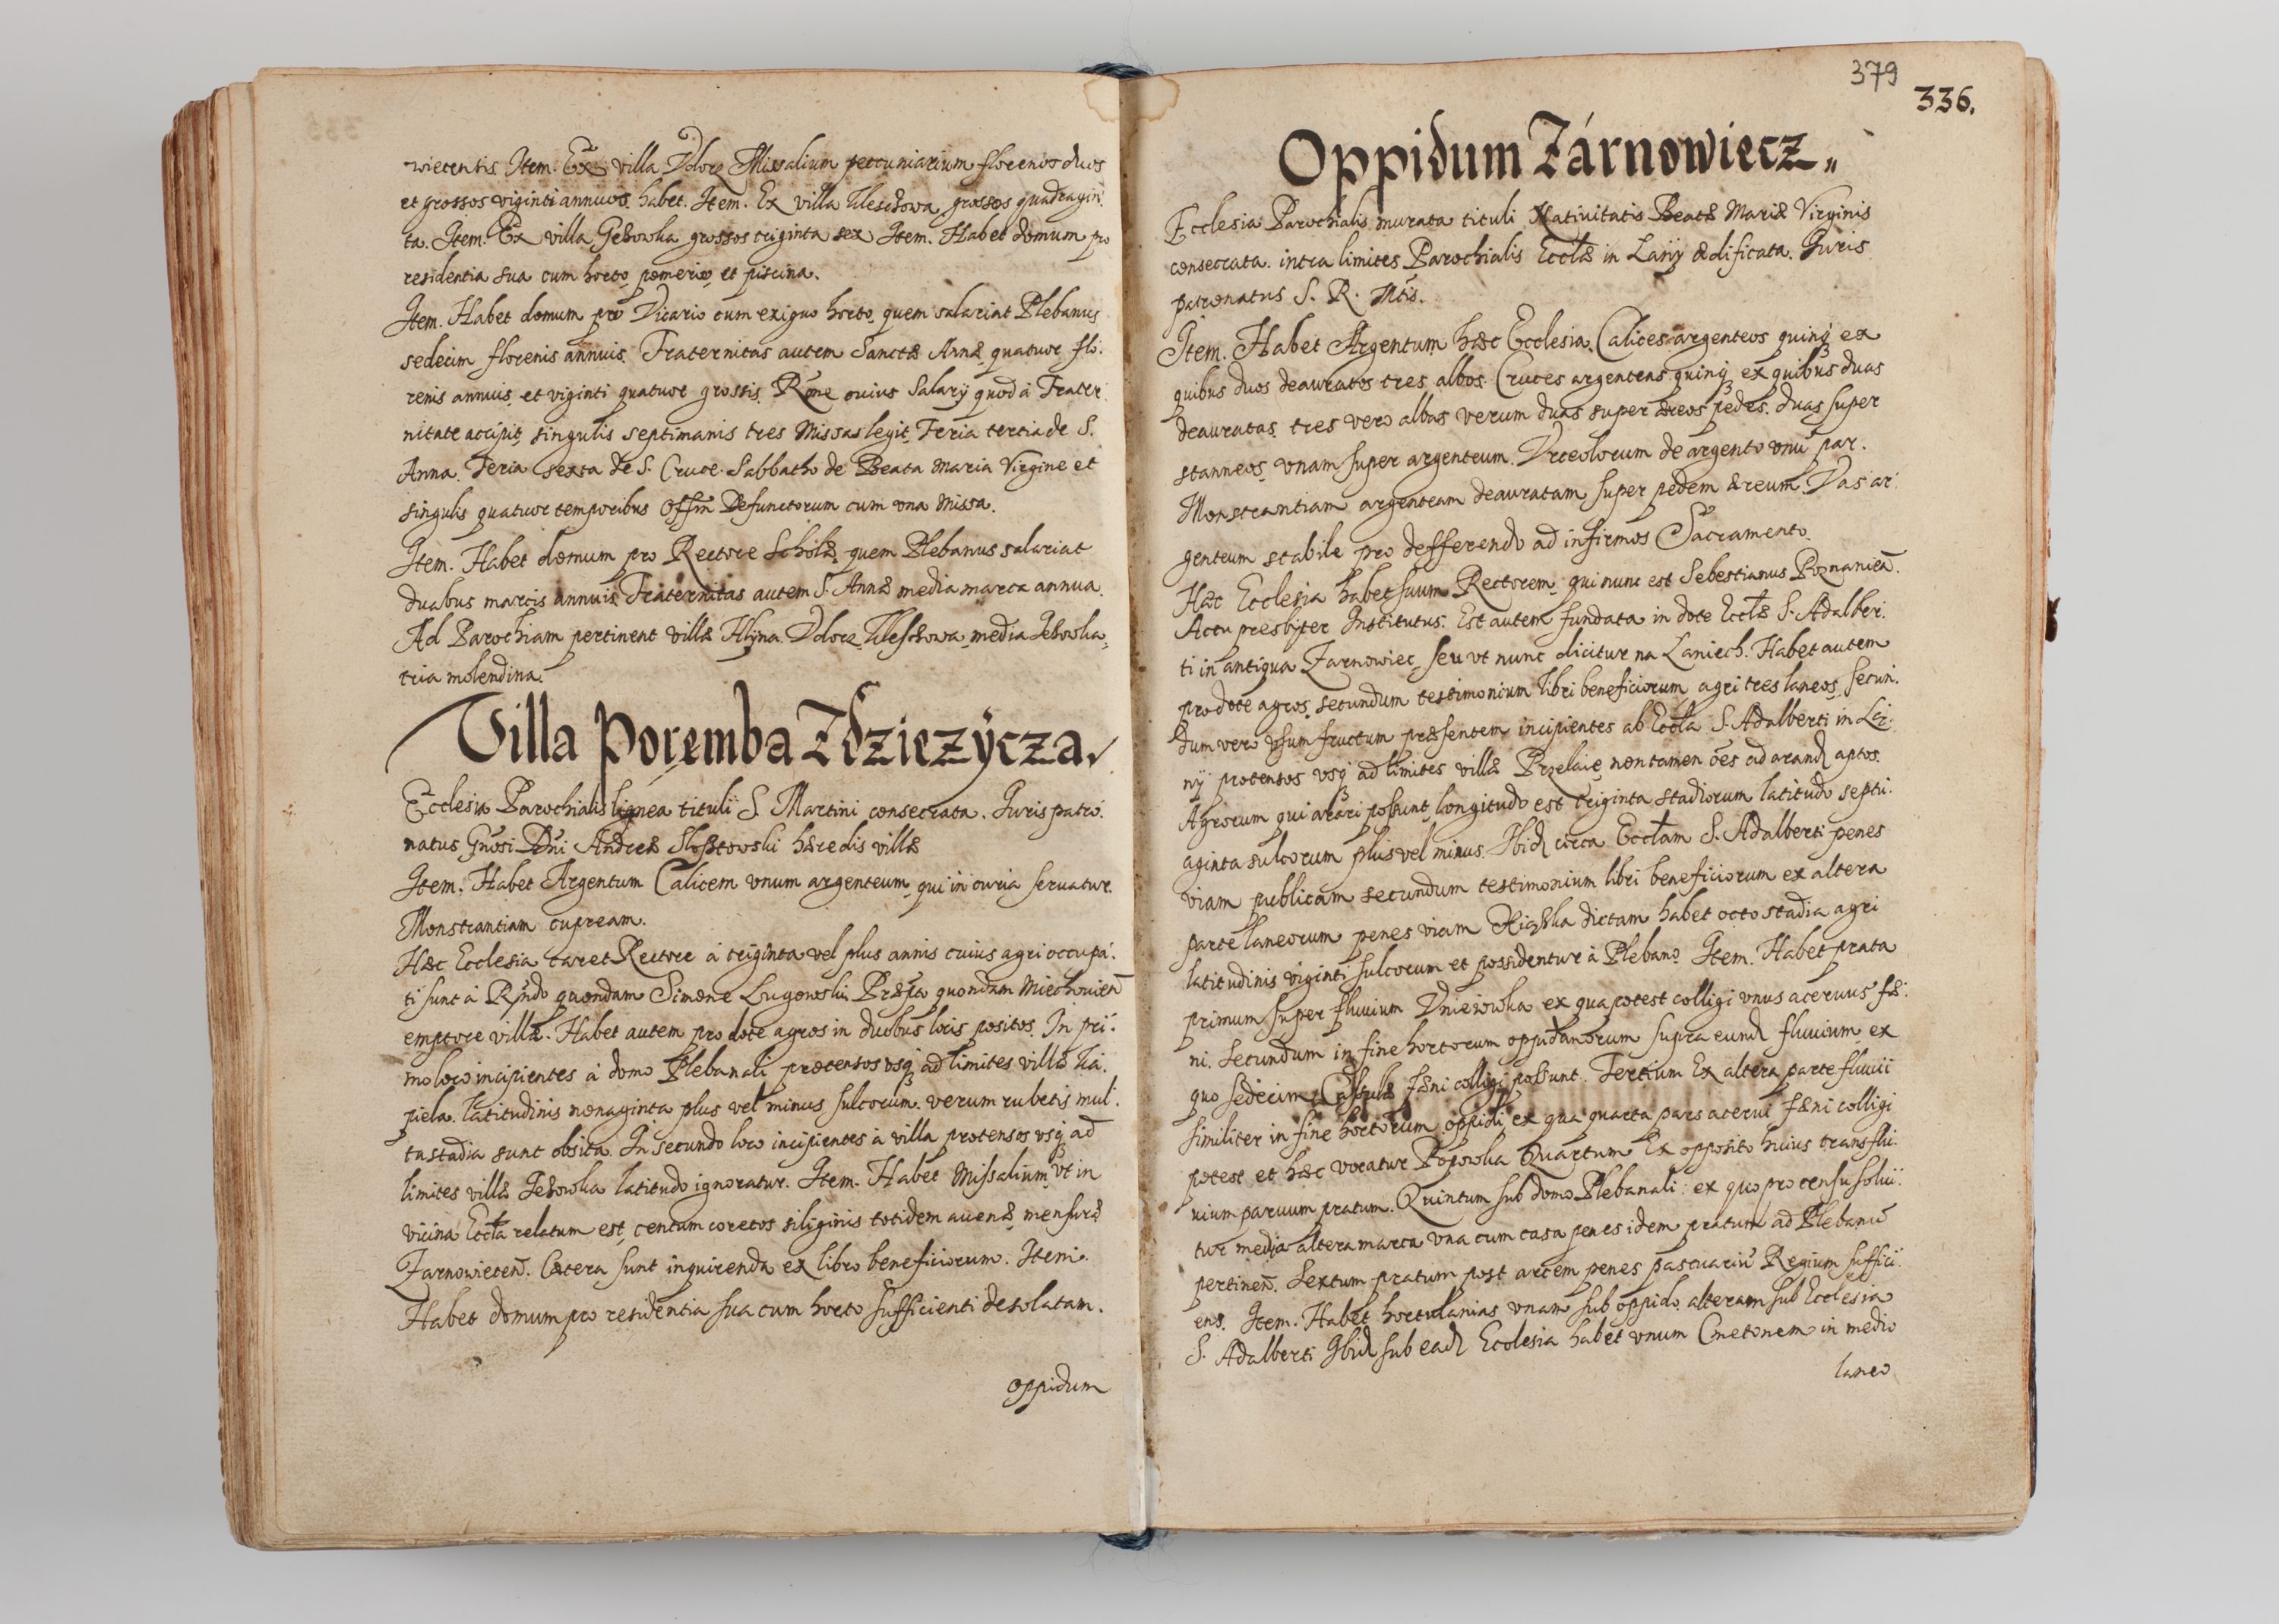 wiecensis. Item. Ex villa Udorz Missalium pecuniarium florenos duos
et grossos viginti annuos habet. Item. Ex villa grossos quadragin
ta. Item. Ex villa Gebowka grossos triginta sex Item. Habet domum pro
residentia sua cum horto, pomerio, et piscina.
Item. Habet domum pro Vicario cum exiguo horto, quem salariat Plebanus
sedecim florenis annuis. Fraternitas autem Sanctæ Annæ quatuor flo:
renis annuis, et viginti quatuor grossis. Rõne cuius Salarÿ quod à Frater
nitate accipit, singulis septimanis tres Missas legit, Feria tertia de S.
Anna. Feria sexta de S. Cruce. Sabbatho de Beata Maria Virgine et
singulis quatuor temporibus Offm Defunctorum cum una Missa.
Item. Habet domum pro Rectore Scholæ, quem Plebanus salariat
duabus marcis annuis Fraternitas autem S. Annæ media marca annua.
Ad Parochiam pertinent villæ Hlyna. Udorz, media Jebowka,
tria molendina.
Villa Poręmba Dziezÿcza.
Ecclesia Parochialis lignea tituli S. Martini consecrata. Iuris patro:
natus Gñosi Dñi Andreæ hæredis villæ
Item. Habet Argentum Calicem vnum argenteum, qui in curia seruatur.
Monstrantiam cupream.
Hæc Ecclesia caret Rectore à triginta vel plus annis cuius agri occupa:
ti sunt à Rñdo quondam Simone Lugowski Præpto quondam Miechouieñ
emptore villæ. Habet autem pro dote agros in duobus locis positos. In pri:
mo loco incipientes à domo Plebanali protensos vsq ad limites villæ Ku
piela. latitudinis nonaginta plus vel minus sulcorum. verum rubetis mul
ta stadia sunt obsita. In secundo loco incipientes à villa protensos vsq ad
limites villæ Jebowka latitudo ignoratur. Item. Habet Missalium, vt in
vicina Eccła relatum est, centum coretos siliginis totidem auenæ, mensuræ
Zarnowieceñ. Cætera sunt inquirenda ex libro beneficiorum. Item.
Habet domum pro residentia sua cum horto sufficienti desolatam.
oppidum
379
336.
Oppidum Zárnowiecz
Ecclesia Parochialis murata tituli Natiuitatis Beatæ Mariæ Virginis
consecrata. intra limites Parochialis Ecclæ in Lanÿ ædificata. Iuris
patronatus S. R. Mtis.
Item. Habet Argentum hæc Ecclesia. Calices argenteos quinq ex
quibus duos deauratos tres albos. Cruces argenteas quinq ex quibus duas
deauratas, tres vero albas verum duas super æreos pedes. duas super
stanneos, vnam super argenteum. Urceolorum de argento vnũ par.
Monstrantiam argenteam deauratam super pedem æreum. Vas ar
genteum stabile pro defferendo ad infirmos Sacramento.
Hæc Ecclesia habet suum Rectorem, qui nunc est Sebestianus Poznanieñ.
Actu presbÿter Institutus. Est autem fundata in dote Ecclæ S. Adalber:
ti in antiqua Zarnowiec, seu vt nunc dicitur na Laniech. Habet autem
pro dote agros, secundum testimonium libri beneficiorum agri tres laneos, secun.
dum vero vsum fructum præsentem incipientes ab Eccła S. Adalberti in
nÿ protensos vsq ad limites villæ non tamen oẽs ad arand aptos.
Agrorum qui arari possunt longitudo est triginta stadiorum latitudo septu
aginta sulcorum plus vel minus. Ibid circa Ecclam S. Adalberti penes
viam publicam secundum testimonium libri beneficiorum ex altera
parte laneorum penes viam dictam habet octo stadia agri
latitudinis viginti sulcorum et possidentur à Plebano. Item. Habet prata
primum super fluuium Uniejowka ex qua potest colligi vnus aceruus fæ:
ni. Secundum in fine hortorum oppidanorum supra eund fluuium ex
quo sedecim fæni colligi possunt. Tertium Ex altera parte fluuii
similiter in fine hortorum oppidi, ex qua quarta pars acerui fæni colligi
potest et hæc vocatur Popowka Quartum Ex opposito huius trans flu:
uium paruum pratum. Quintum sub domo Plebanali: ex quo pro censu solui:
tur media altera marca vna cum casa penes idem pratum ad Plebanũ
pertineñ. Sextum pratum post arcem penes pascuariũ Regium suffici:
ens. Item. Habet hortulanias vnam sub oppido, alteram sub Ecclesia
S. Adalberti Ibid sub ead Ecclesia habet vnum Cmetonem in medio
laneo